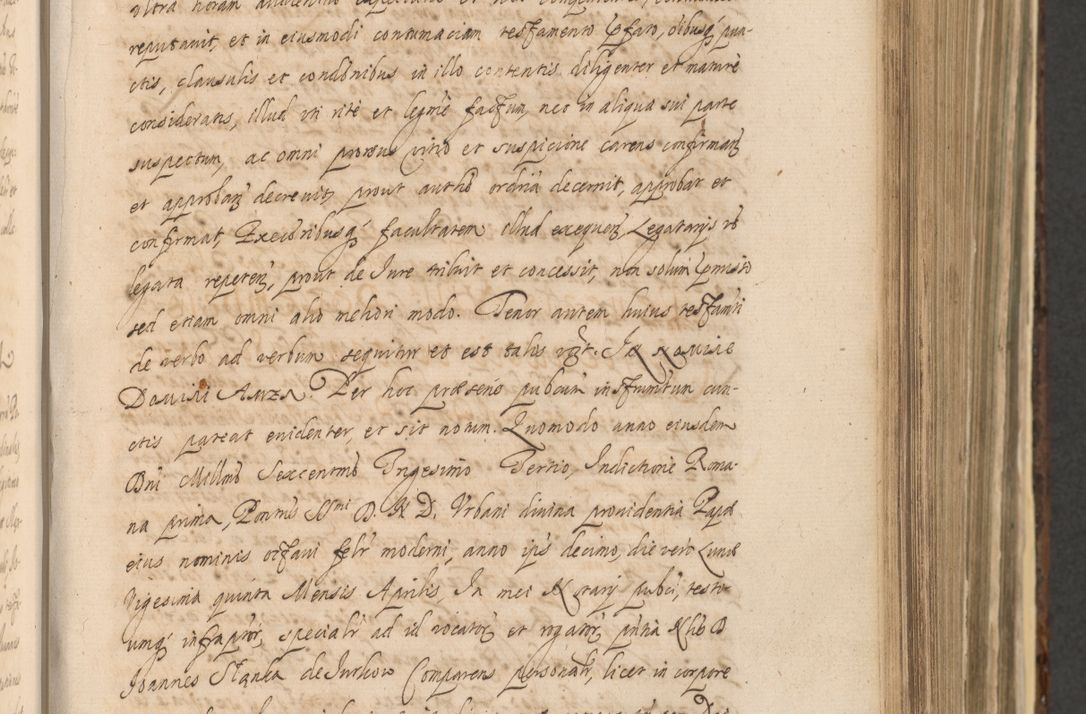 reputavit, et in eiusmodi contumaciam testamento
ctis, clausulis et condinibus in illo contentis diligenter et mature
considerans, illud uti rite et legme factum, nec in aliqua sui parte
suspectum, ac omni prorsus vitio et suspicione carens confirmanz
et approbanz decrevit, prout autho ordria decernit, approbat et
confirmat, Execoribusq facultatem illud exequenz Legatarijs vo
legata repetenz, prout de Iure tribuit et concessit, non solum pmisso
sed etiam omni alio meliori modo. Tenor autem huius testamti
de verbo ad verbum sequitur et est talis vzt. In nomine
Domini Amen. Per hoc præsens publcum instrumtum cun-
ctis pateat evidenter, et sit notum. Quomodo anno eiusdem
Dni Millmo Sexcentmo Trigesimo Tertio, Indictione Roma-
na prima, Pontnis Ssmi D. N. D. Urbani divina providentia Papæ
eius nominis octavi felr moderni, anno ips decimo, die vero Lunæ
Vigesima quinta Mensis Aprilis, In mei Nrarij publci, testi-
umq infraptor, specialr ad id vocator et rogator, pntia Nblis D
Joannes Stanka de Jurkow Comparens personalr, licet in corpore